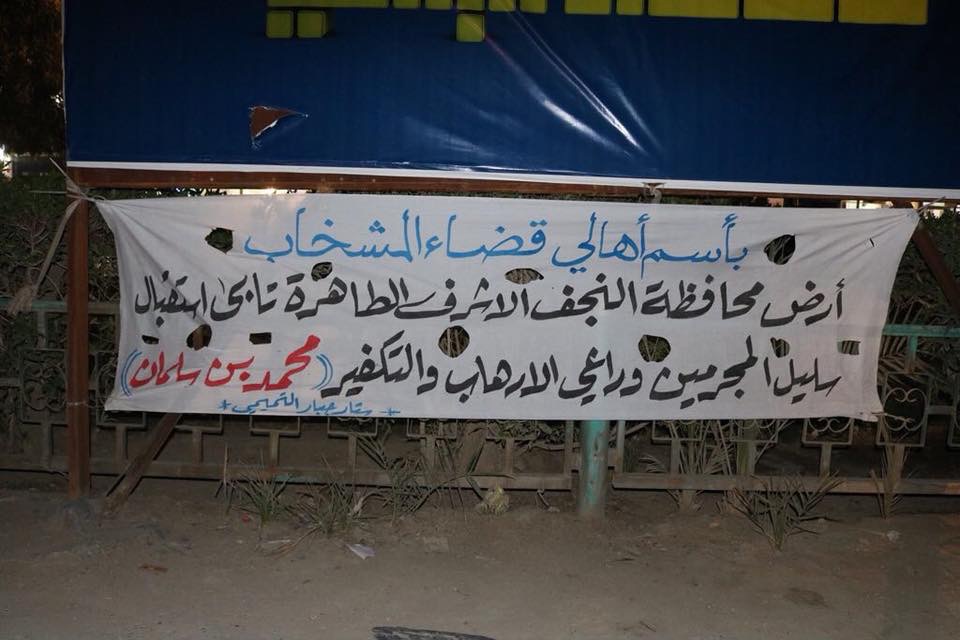 بأسم أهالي قضاء المشخاب
أرض محافظة النجف الاشرف الطاهرة تابى استقبال
سليل المجرمين وراعي الارهاب والتكفير (محمد بن سلمان)
+ ستار جبار التميمي +